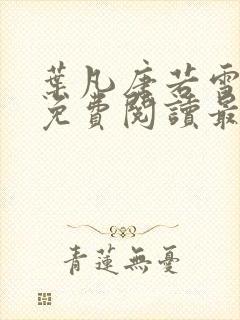 葉凡唐若雪
免費閱讀最
青蓮無憂